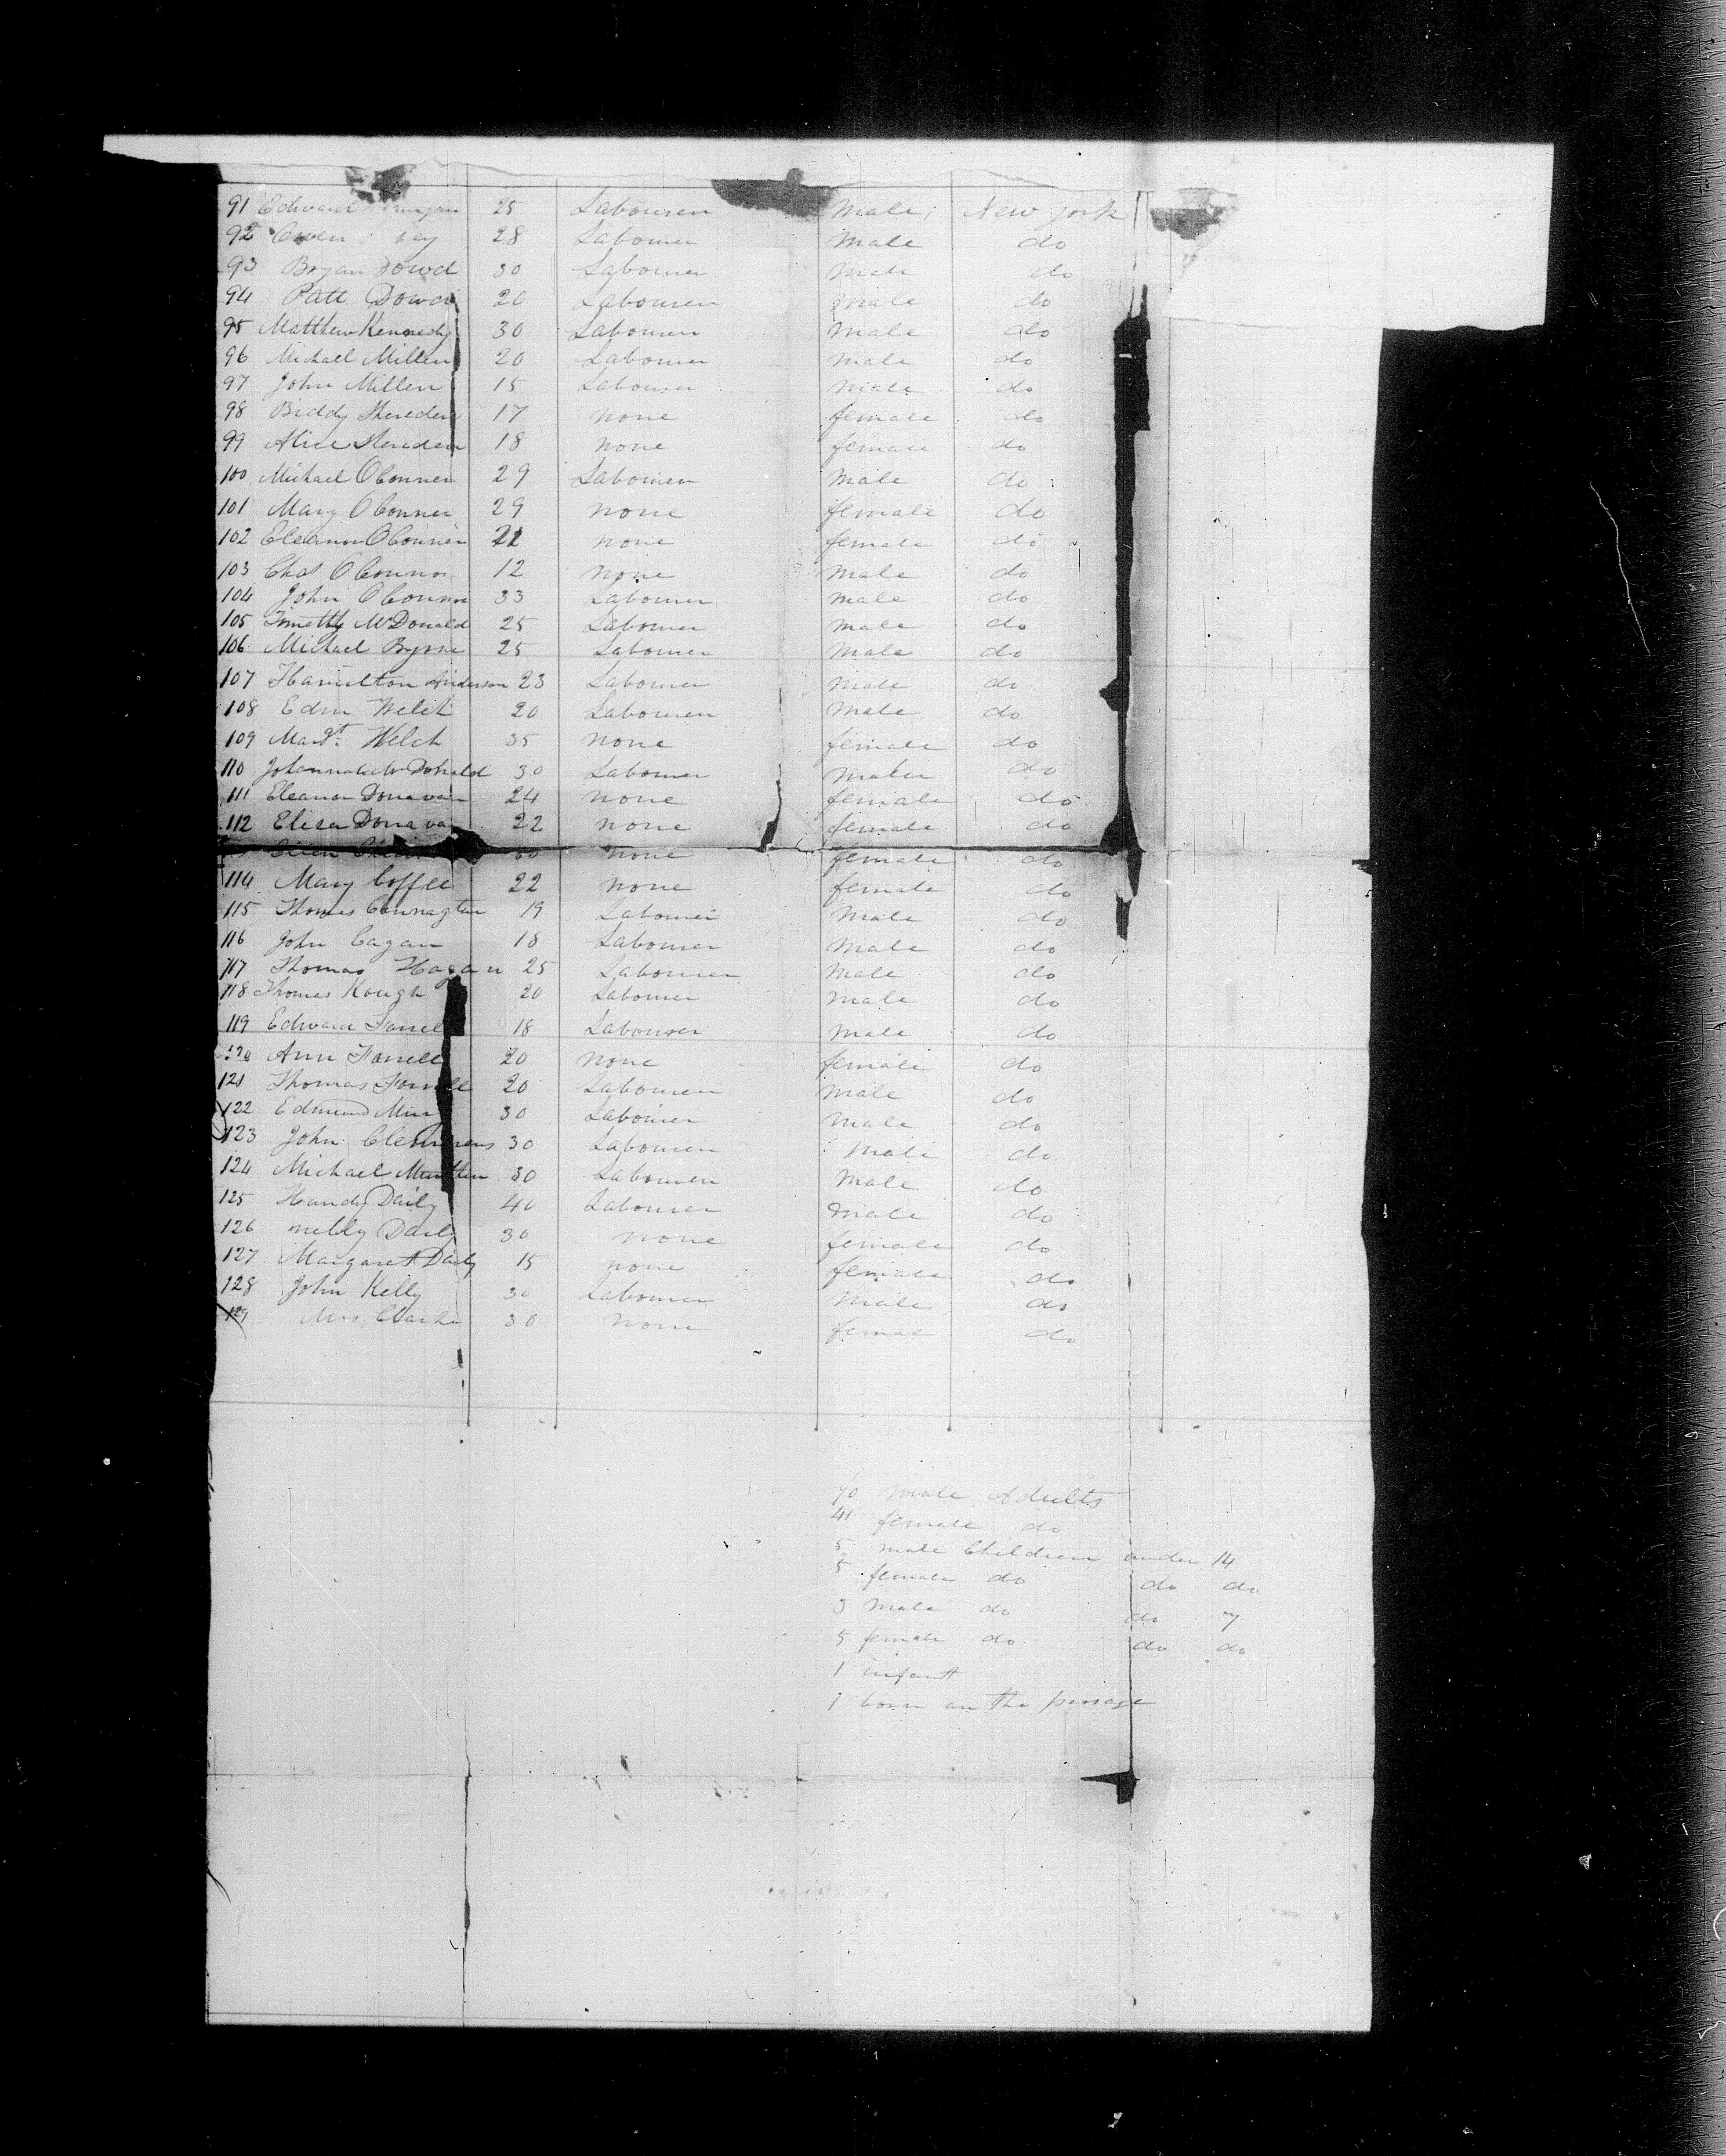 91 Edward 25 Labourer male New york
92 Owen 28 Labourer male do
93 Bryan Dowd 30 Labourer male do
94 Patt Dowd 20 Labourer male do
95 Matthew Kennedy 30 Labourer male do
96 Michael Miller 20 Labourer male do
97 John Miller 15 Labourer male do
98 Biddy Shereden 17 none female do
99 Alice Shereden 18 none female do
100 Michael OConner 29 Labourer male do
101 Mary OConner 29 none female do
102 Eleanor OConner 21 none female do
103 Chas OConnor 12 none male do
104 John OConnor 33 Labourer male do
105 Timothy McDonald 25 Labourer male do
106 Michael Byrne 25 Labourer male do
107 Hamilton Anderson 23 Labourer male do
108 Edm Welch 20 Labourer male do
109 Margt Welch 35 none female do
110 Johannah McDonald 30 Labourer male do
111 Eleanor Donavan 24 none female do
112 Eliza Donavan 22 none female do
Ellen none female do
114 Mary Coffee 22 none female do
115 Thomas Connagton 19 Labourer male do
116 John Eagan 18 Labourer male do
117 Thomas Hagan 25 Labourer male do
118 Thomas Kough 20 Labourer male do
119 Edward Farrell 18 Labourer male do
120 Ann Farrell 20 none female do
121 Thomas Farrell 20 Labourer male do
122 Edmund 30 Labourer male do
123 John Clemmens 30 Labourer male do
124 Michael 30 Labourer male do
125 Handy Daily 40 Labourer male do
126 nelly Daily 30 none female do
127 Margaret Daily 15 none female do
128 John Kelly 30 Labourer male do
129 Mrs Clarke 30 none female do
70 male Adults
41 female do
5 male Children under 14
5 female do do do
3 male do do 7
5 female do do do
1 infant
1 born on the passage